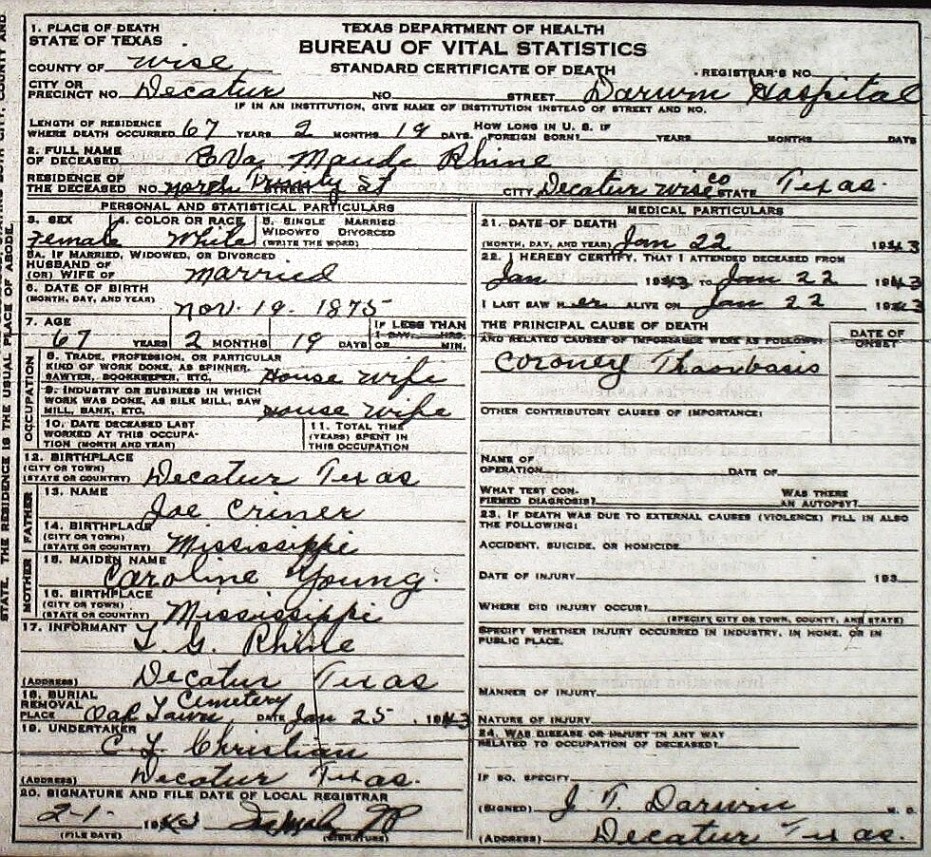 TEXAS DEPARTMENT OF HEALTH
BUREAU OF VITAL STATISTICS
STANDARD CERTIFICATE OF DEATH
1. PLACE OF DEATH
STATE OF TEXAS
COUNTY OF Wise
REGISTRAR'S NO.
CITY OR PRECINCT NO. Decatur NO. STREET Darwin Hospital
IF IN AN INSTITUTION, GIVE NAME OF INSTITUTION INSTEAD OF STREET AND NO.
LENGTH OF RESIDENCE WHERE DEATH OCCURRED 67 YEARS 2 MONTHS 19 DAYS. HOW LONG IN U. S. IF FOREIGN BORN? YEARS MONTHS DAYS
2. FULL NAME OF DECEASED Eva Maude Rhine
RESIDENCE OF THE DECEASED NO. North Trinity St CITY Decatur Wise co STATE Texas.
PERSONAL AND STATISTICAL PARTICULARS
3. SEX Female
4. COLOR OR RACE White
5. SINGLE MARRIED WIDOWED DIVORCED (WRITE THE WORD)
5A. IF MARRIED, WIDOWED, OR DIVORCED
HUSBAND OF (OR) WIFE OF married
6. DATE OF BIRTH (MONTH, DAY, AND YEAR) Nov. 19. 1875
7. AGE 67 YEARS 2 MONTHS 19 DAYS IF LESS THAN 1 DAY, HRS. OR MIN.
OCCUPATION
8. TRADE, PROFESSION, OR PARTICULAR KIND OF WORK DONE, AS SPINNER, SAWYER, BOOKKEEPER, ETC. House wife
9. INDUSTRY OR BUSINESS IN WHICH WORK WAS DONE, AS SILK MILL, SAW MILL, BANK, ETC. House wife
10. DATE DECEASED LAST WORKED AT THIS OCCUPATION (MONTH AND YEAR)
11. TOTAL TIME (YEARS) SPENT IN THIS OCCUPATION
12. BIRTHPLACE (CITY OR TOWN) (STATE OR COUNTRY) Decatur Texas
FATHER
13. NAME Joe Criner
14. BIRTHPLACE (CITY OR TOWN) (STATE OR COUNTRY) Mississippi
MOTHER
15. MAIDEN NAME Caroline Young
16. BIRTHPLACE (CITY OR TOWN) (STATE OR COUNTRY) Mississippi
17. INFORMANT T. G. Rhine
(ADDRESS) Decatur Texas
18. BURIAL REMOVAL PLACE Oak Lawn Cemetery DATE Jan 25, 1943
19. UNDERTAKER C. L. Christian
(ADDRESS) Decatur Texas.
20. SIGNATURE AND FILE DATE OF LOCAL REGISTRAR
2-1- 1943
(FILE DATE) (SIGNATURE)
MEDICAL PARTICULARS
21. DATE OF DEATH (MONTH, DAY, AND YEAR) Jan 22 1943
22. I HEREBY CERTIFY, THAT I ATTENDED DECEASED FROM
Jan 1943 TO Jan 22 1943
I LAST SAW H er ALIVE ON Jan 22 1943
THE PRINCIPAL CAUSE OF DEATH AND RELATED CAUSES OF IMPORTANCE WERE AS FOLLOWS:
DATE OF ONSET
Coroney Thombasis
OTHER CONTRIBUTORY CAUSES OF IMPORTANCE:
NAME OF OPERATION DATE OF
WHAT TEST CONFIRMED DIAGNOSIS? WAS THERE AN AUTOPSY?
23. IF DEATH WAS DUE TO EXTERNAL CAUSES (VIOLENCE) FILL IN ALSO THE FOLLOWING:
ACCIDENT, SUICIDE, OR HOMICIDE
DATE OF INJURY 193
WHERE DID INJURY OCCUR?
(SPECIFY CITY OR TOWN, COUNTY, AND STATE)
SPECIFY WHETHER INJURY OCCURRED IN INDUSTRY, IN HOME, OR IN PUBLIC PLACE.
MANNER OF INJURY
NATURE OF INJURY
24. WAS DISEASE OR INJURY IN ANY WAY RELATED TO OCCUPATION OF DECEASED?
IF SO, SPECIFY
(SIGNED) J. T. Darwin M. D.
(ADDRESS) Decatur Texas.
STATE. THE RESIDENCE IS THE USUAL PLACE OF ABODE.